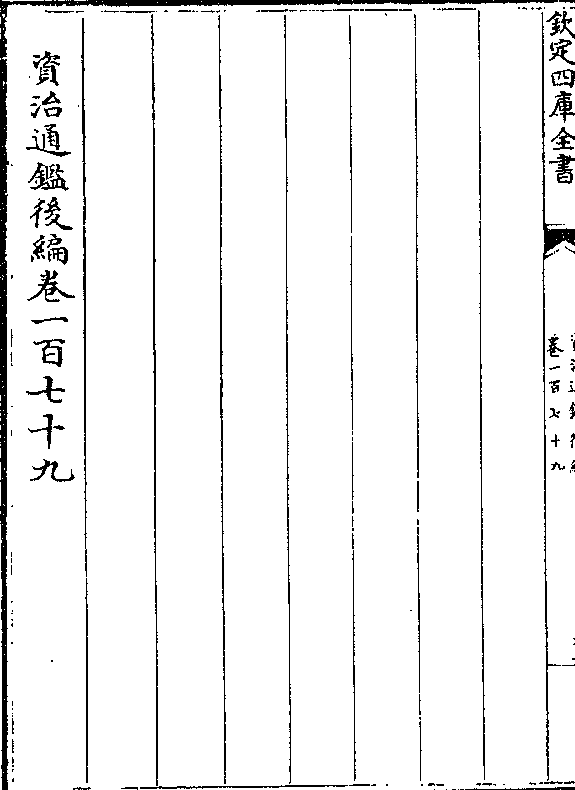 欽定四庫全書
卷一百七十九
資治通鑑後編卷一百七十九